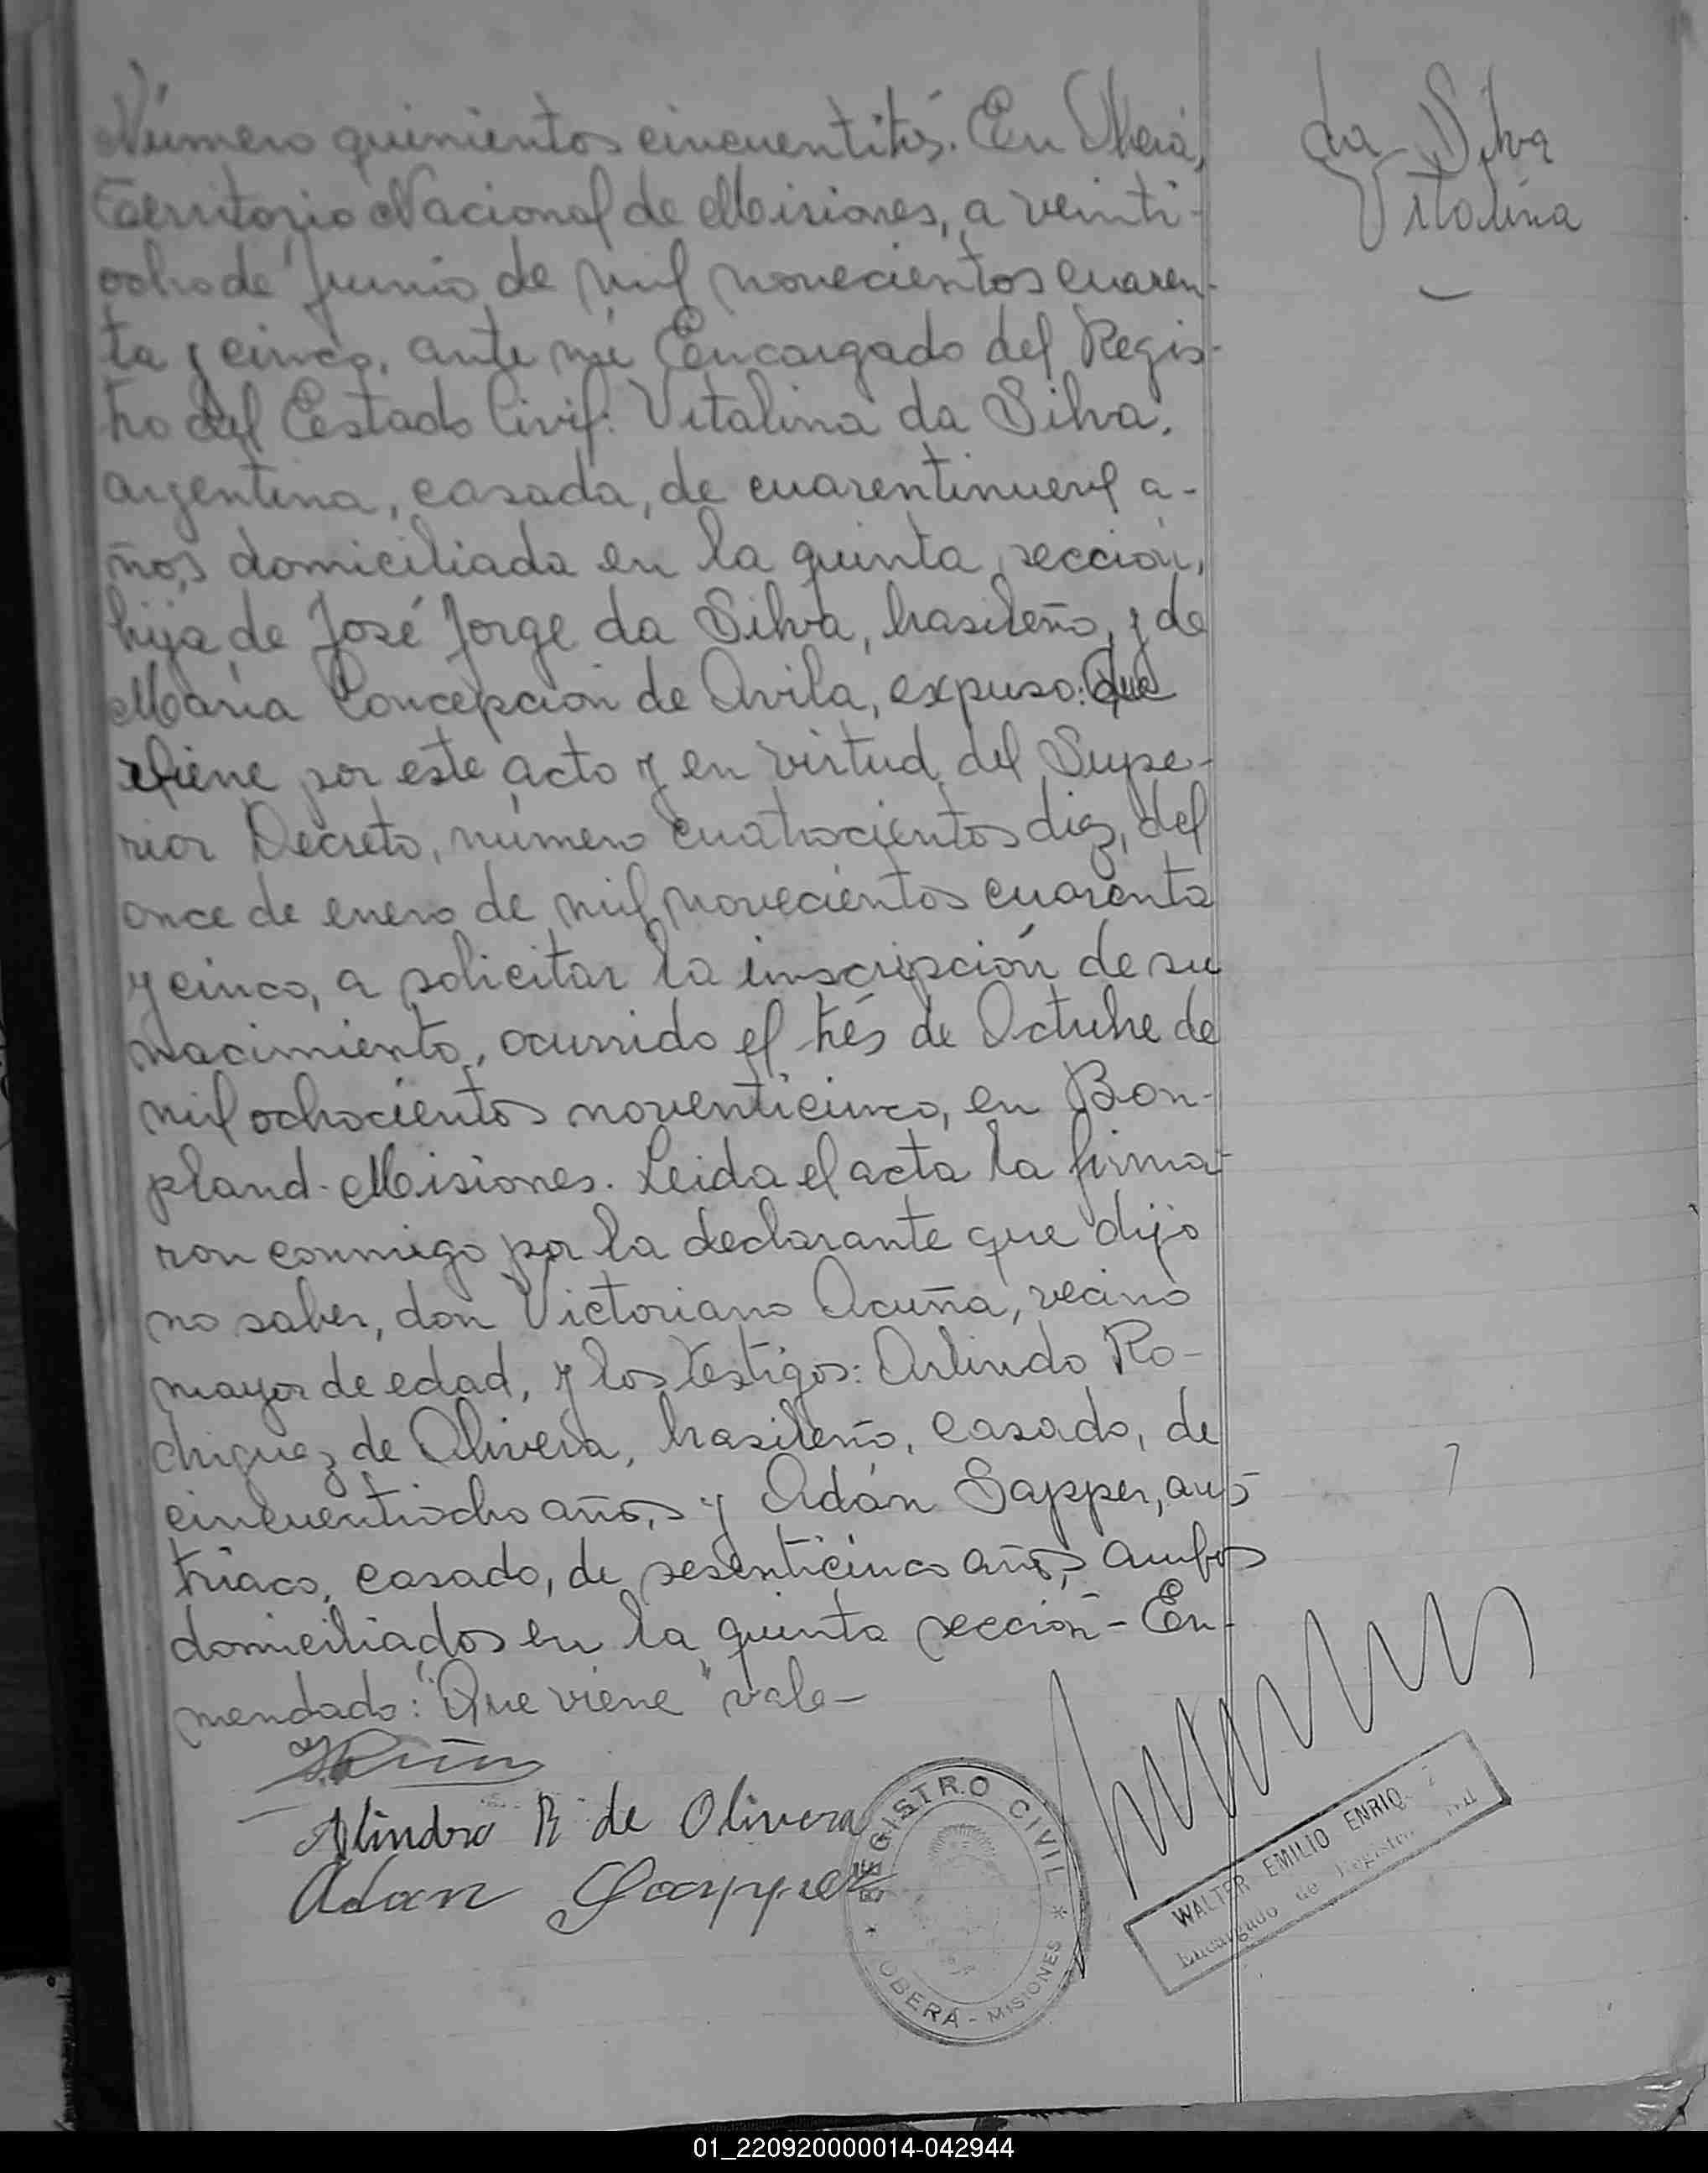 da Silva
Vitalina
Número quinientos cincuentitrés. En Oberá,
Territorio Nacional de Misiones, a veinti-
ocho de Junio de mil novecientos cuaren-
ta y cinco, ante mí Encargado del Regis-
tro del Estado Civil: Vitalina da Silva,
argentina, casada, de cuarentinueve a-
ños domiciliada en la quinta sección,
hija de José Jorge da Silva, brasileño, y de
María Concepción de Avila, expuso: Que
viene por este acto y en virtud del Supe-
rior Decreto, número cuatrocientos diez, del
once de enero de mil novecientos cuarenta
y cinco, a solicitar la inscripción de su
nacimiento, ocurrido el trés de Octubre de
mil ochocientos noventicinco, en Bon-
pland-Misiones. Leida el acta la firma-
ron conmigo por la declarante que dijo
no saber, don Victoriano Acuña, vecino
mayor de edad, y los testigos: Arlindo Ro-
driguez de Olivera, brasileño, casado, de
cincuentiocho años, y Adán Sapper, aus-
triaco, casado, de sesenticinco años, ambos
domiciliados en la quinta sección - En-
mendado: "Que viene" vale-
Alindro R de Olivera
Adan Sapper
REGISTRO CIVIL
OBERÁ - MISIONES
WALTER EMILIO ENRIQ
Encargado de Registro
01_220920000014-042944